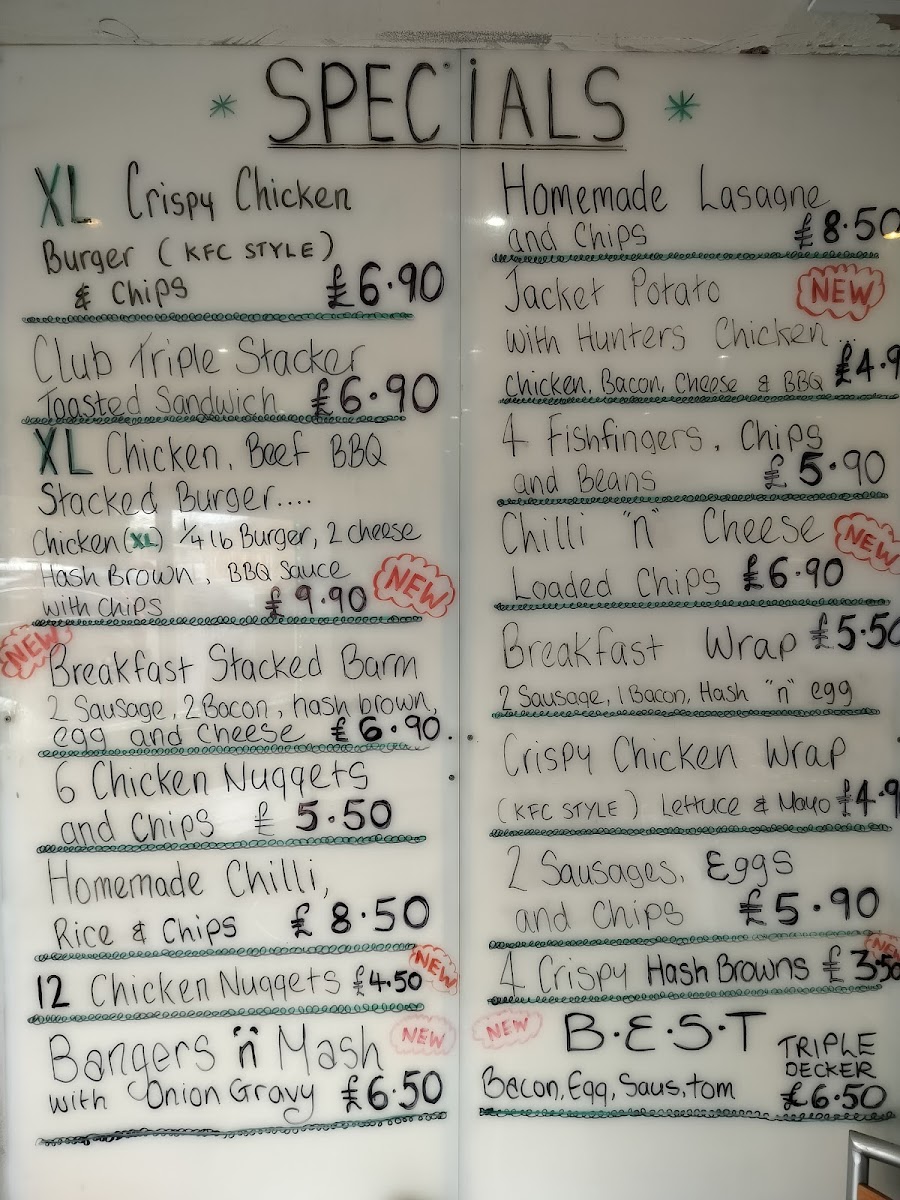 * SPECIALS *
XL Crispy Chicken
Burger ( KFC STYLE )
& Chips £6.90
Club Triple Stacker
Toasted Sandwich £6.90
XL Chicken, Beef BBQ
Stacked Burger....
Chicken (XL) 1/4 lb Burger, 2 cheese
Hash Brown, BBQ Sauce
with chips £9.90 NEW
NEW
Breakfast Stacked Barm
2 Sausage, 2 Bacon, hash brown,
egg and cheese £6.90.
6 Chicken Nuggets
and Chips £5.50
Homemade Chilli,
Rice & Chips £8.50
12 Chicken Nuggets £4.50 NEW
Bangers "n" Mash NEW
with Onion Gravy £6.50
Homemade Lasagne
and Chips £8.50
Jacket Potato NEW
with Hunters Chicken..
Chicken, Bacon, Cheese & BBQ £4.9
4 Fishfingers, Chips
and Beans £5.90
Chilli "n" Cheese NEW
Loaded Chips £6.90
Breakfast Wrap £5.50
2 Sausage, 1 Bacon, Hash "n" egg
Crispy Chicken Wrap
(KFC STYLE) Lettuce & Mayo £4.9
2 Sausages, Eggs
and Chips £5.90
4 Crispy Hash Browns £3.50 NEW
NEW B.E.S.T
TRIPLE
DECKER
Bacon, Egg, Saus, tom £6.50